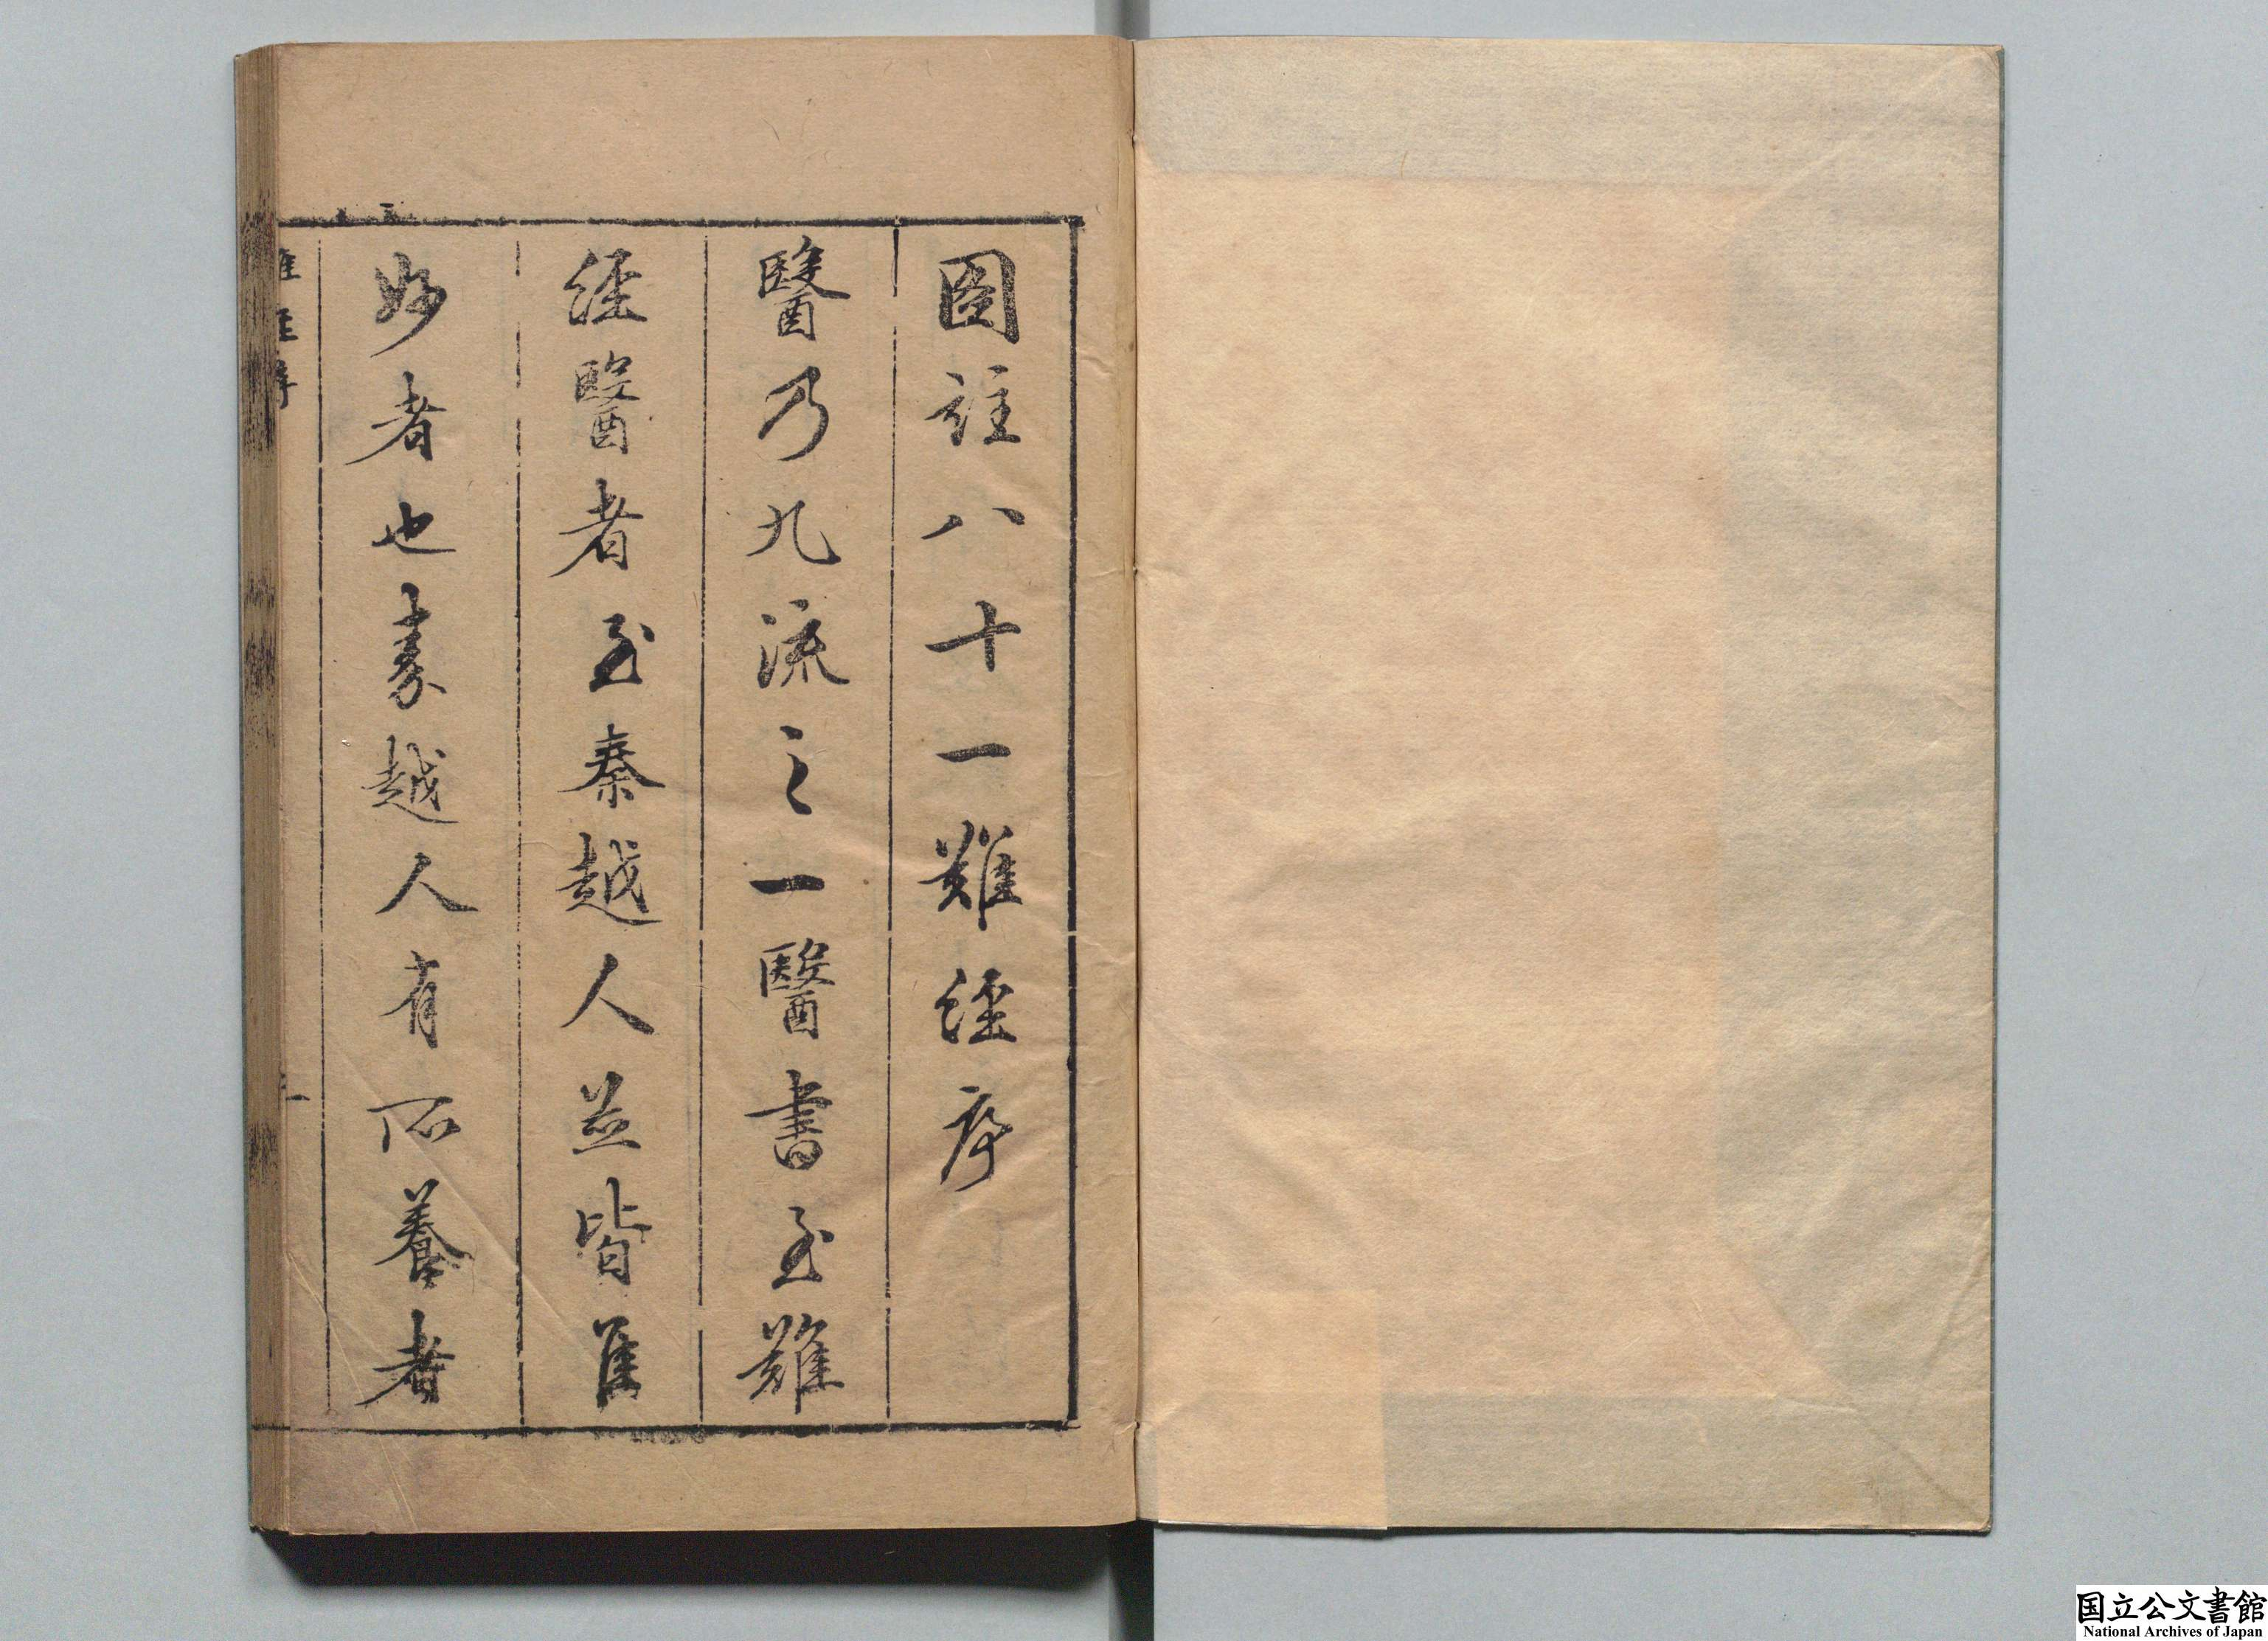 圖註八十一難經序
醫乃九流之一醫書至難
經醫者至秦越人並皆佳
妙者也越人有所養者
難經序
一
国立公文書館
National Archives of Japan